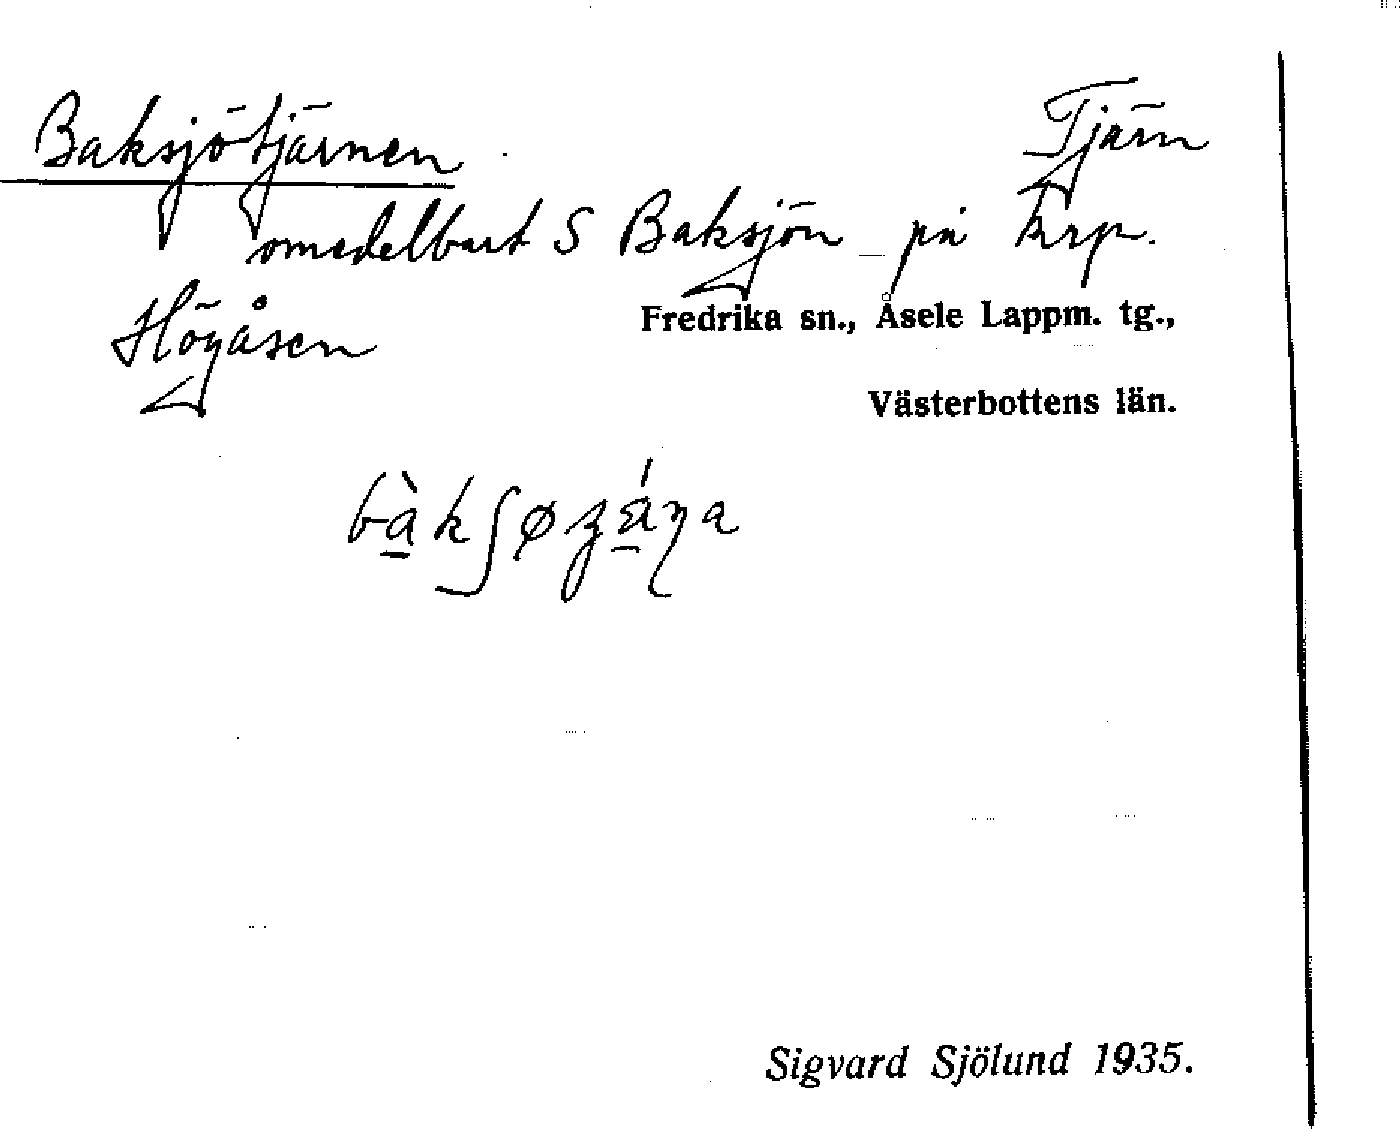 Baksjötjärnen Tjärn
omedelbart S Baksjön på krp.
Högåsen
Fredrika sn., Åsele Lappm. tg.,
Västerbottens län.
Sigvard Sjölund 1935.